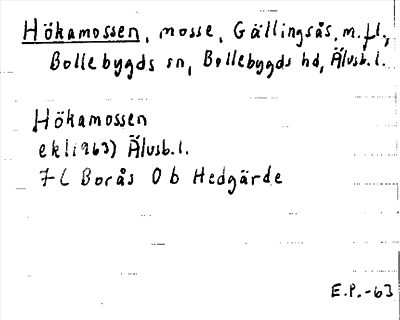 Hökamossen, mosse, Gällingsås, m.fl.,
Bollebygds sn, Bollebygds hd, Älvsb.l.
Hökamossen
ekl(1963) Älvsb.l.
7C Borås 0b Hedgärde
E.P.-63